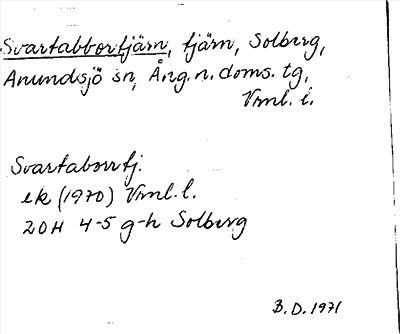 Svartabborrtjärn, tjärn, Solberg,
Anundsjö sn, Ång. n. doms. tg,
Vrml. l.
Svartaborrtj.
ek (1970) Vrml. l.
20H 4-5 g-h Solberg
B. D. 1971